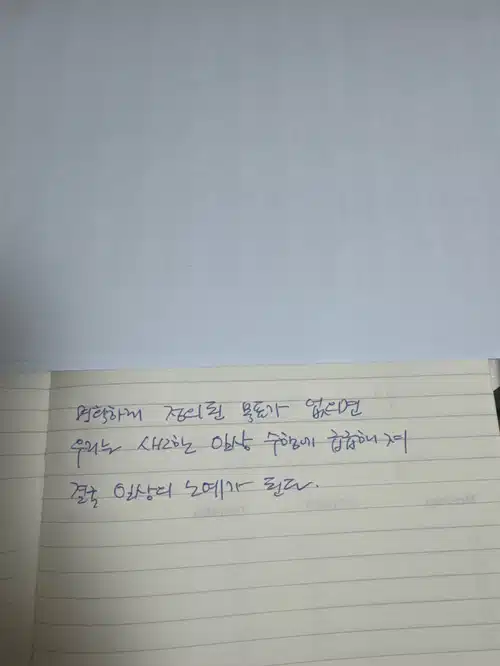 명확하게 정의된 목표가 없으면
우리는 사소한 일상 수행에 충충해져
결국 일상의 노예가 된다.